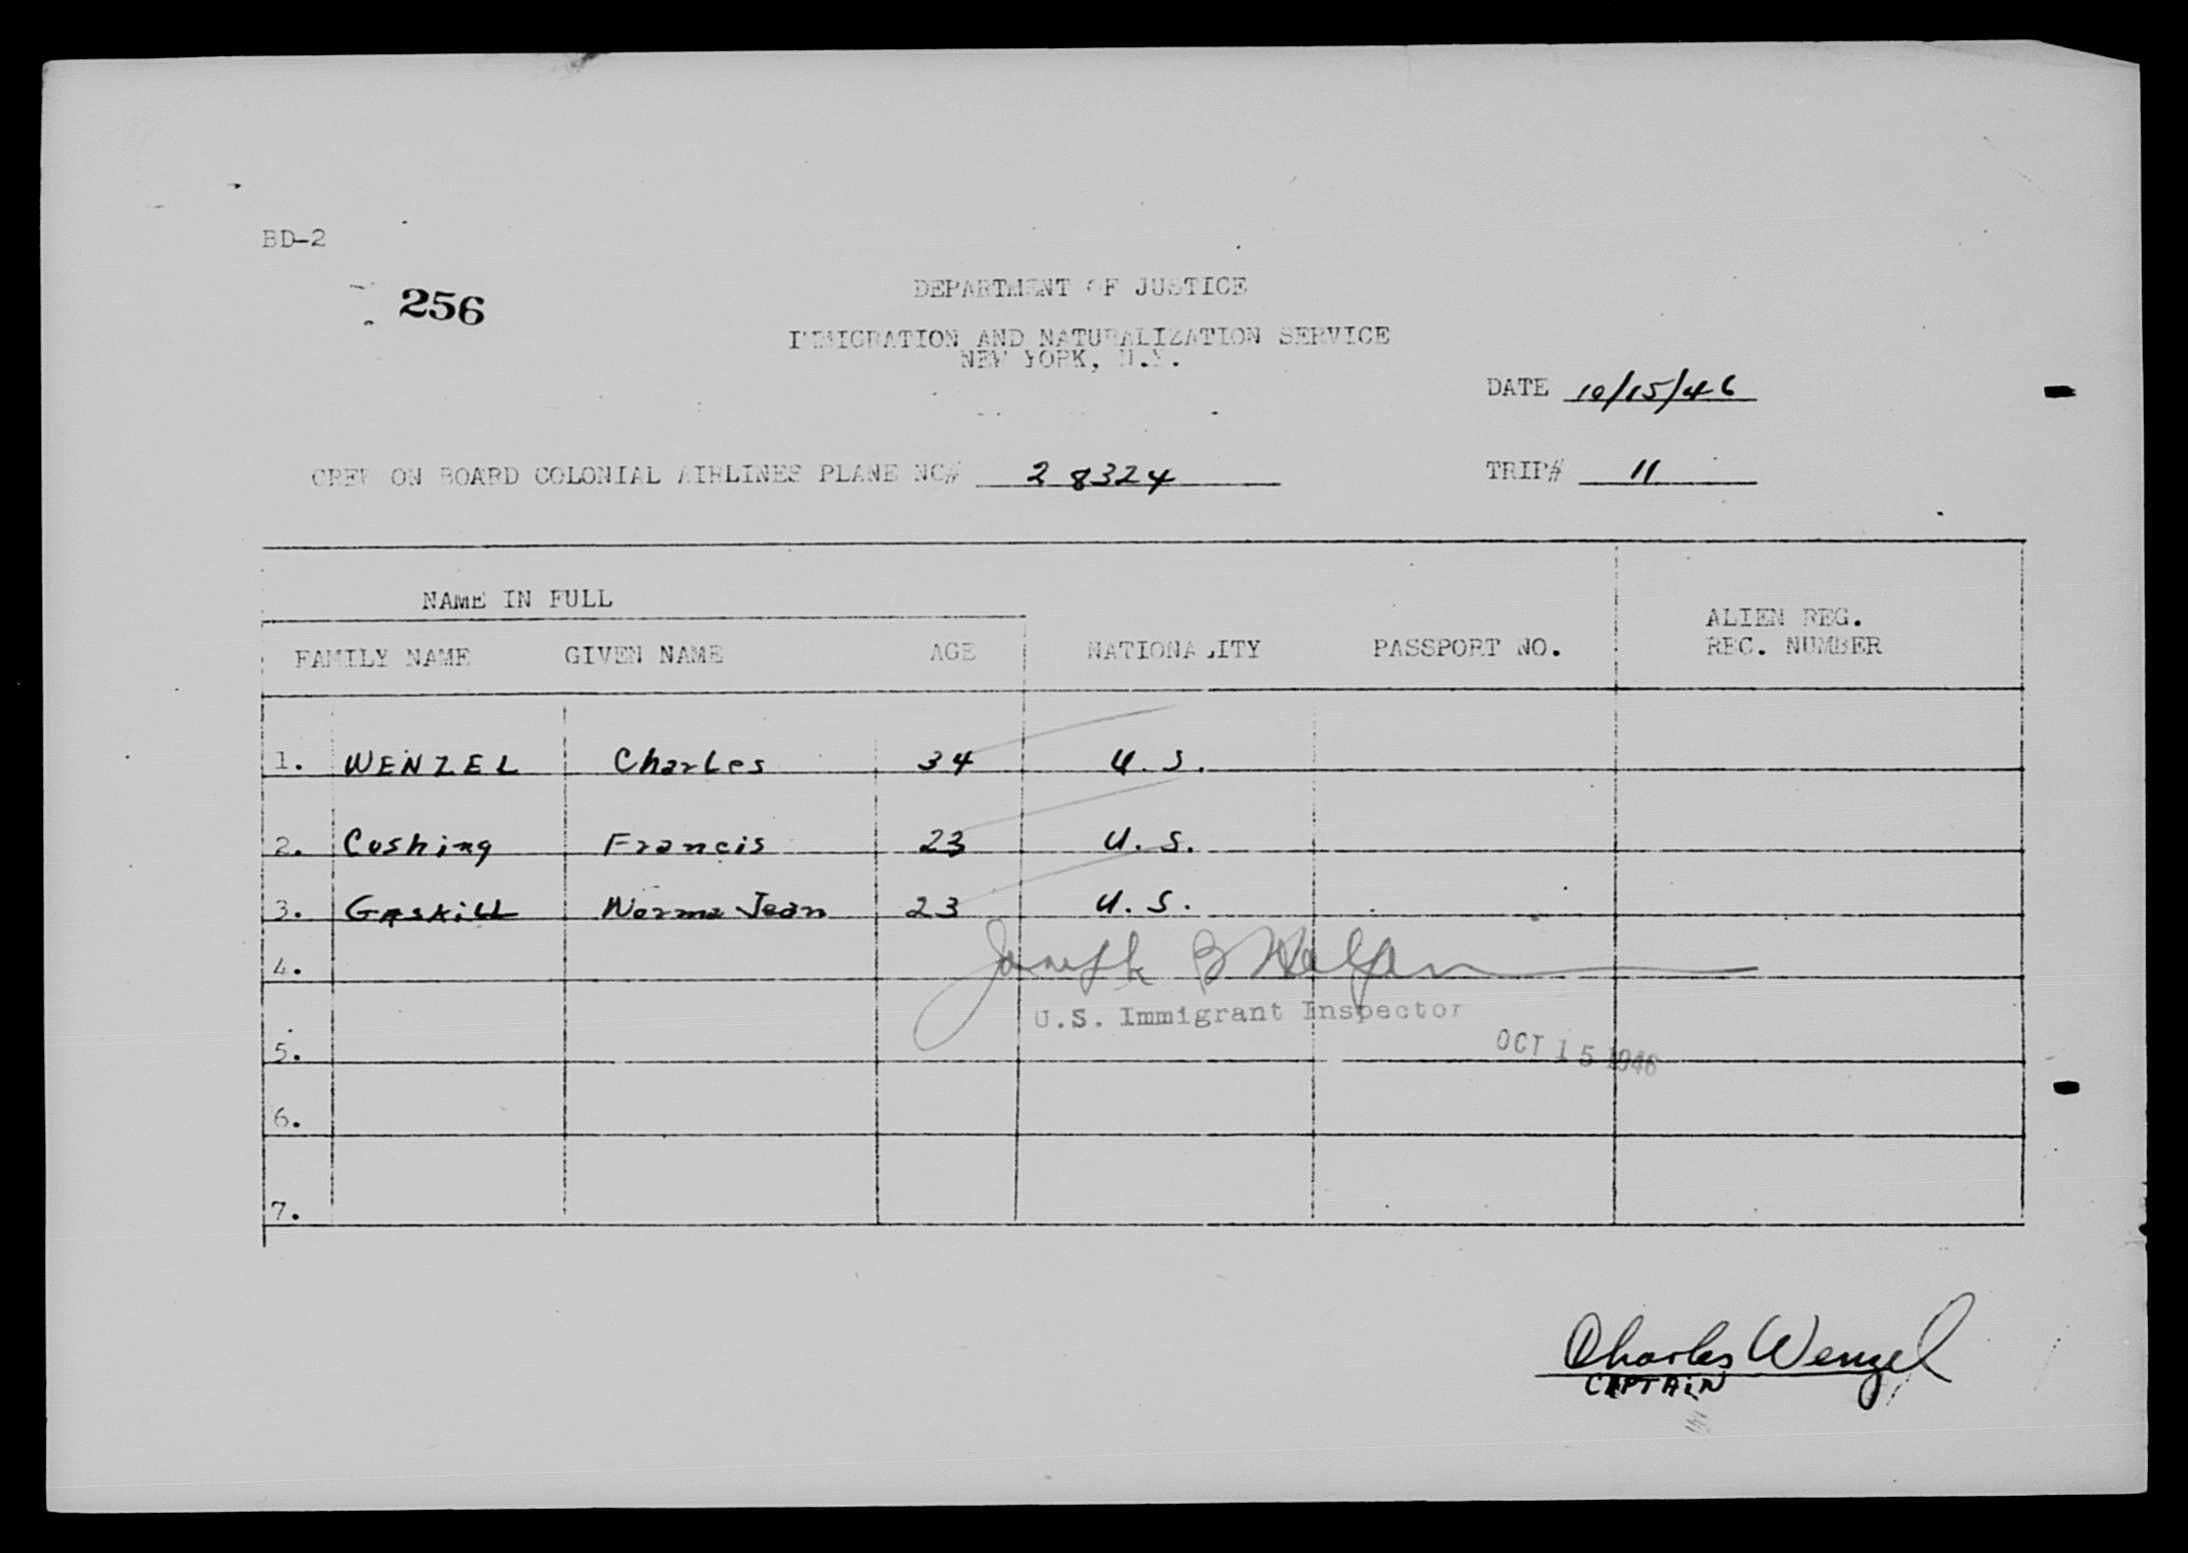 BD-2
256
DEPARTMENT OF JUSTICE
IMMIGRATION AND NATURALIZATION SERVICE
NEW YORK, N.Y.
DATE 10/15/46
CREW ON BOARD COLONIAL AIRLINES PLANE NC# 28324 TRIP# 11
NAME IN FULL
ALIEN REG.
FAMILY NAME GIVEN NAME AGE NATIONALITY PASSPORT NO. REC. NUMBER
1. WENZEL Charles 34 U.S.
2. Cushing Francis 23 U.S.
3. Gaskill Norma Jean 23 U.S.
4. Joseph B
U.S. Immigrant Inspector
OCT 15 1946
5.
6.
7.
Charles Wenzel
CAPTAIN